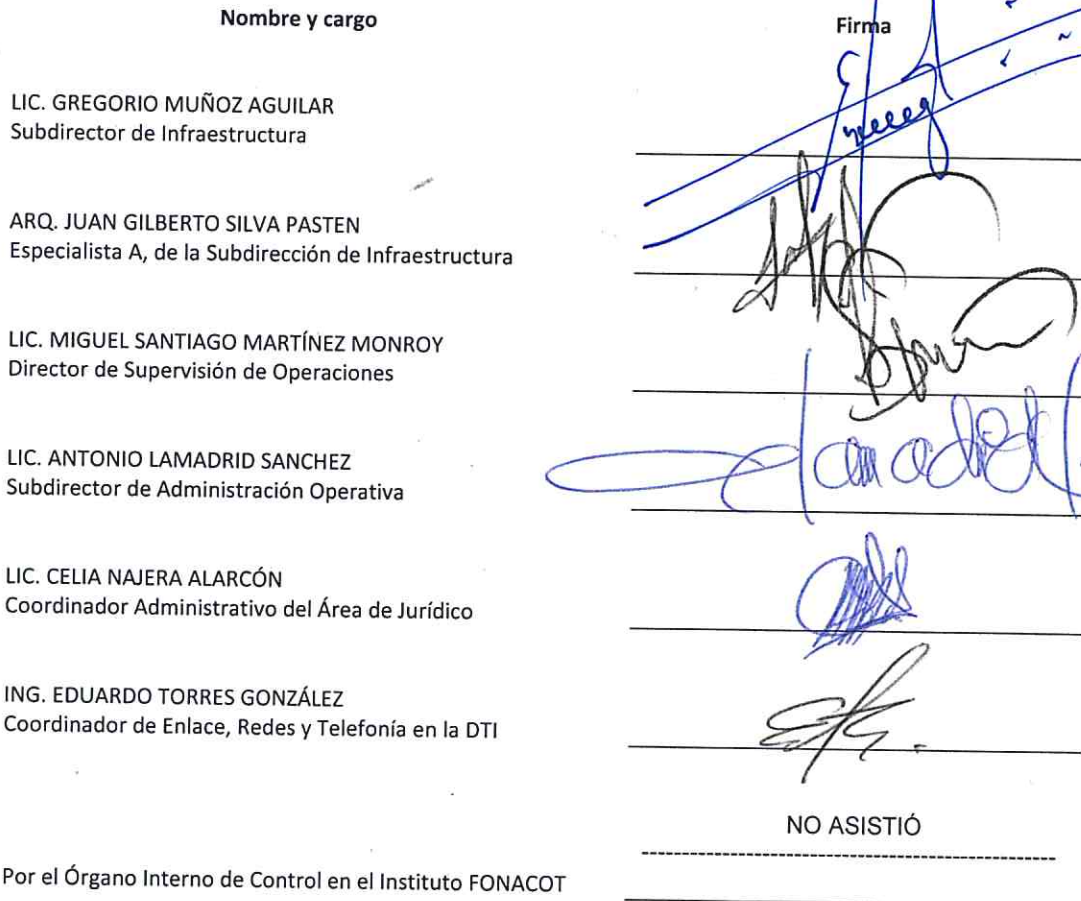 Nombre y cargo
Firma
LIC. GREGORIO MUÑOZ AGUILAR
Subdirector de Infraestructura
ARQ. JUAN GILBERTO SILVA PASTEN
Especialista A, de la Subdirección de Infraestructura
LIC. MIGUEL SANTIAGO MARTÍNEZ MONROY
Director de Supervisión de Operaciones
LIC. ANTONIO LAMADRID SANCHEZ
Subdirector de Administración Operativa
LIC. CELIA NAJERA ALARCÓN
Coordinador Administrativo del Área de Jurídico
ING. EDUARDO TORRES GONZÁLEZ
Coordinador de Enlace, Redes y Telefonía en la DTI
NO ASISTIÓ
Por el Órgano Interno de Control en el Instituto FONACOT